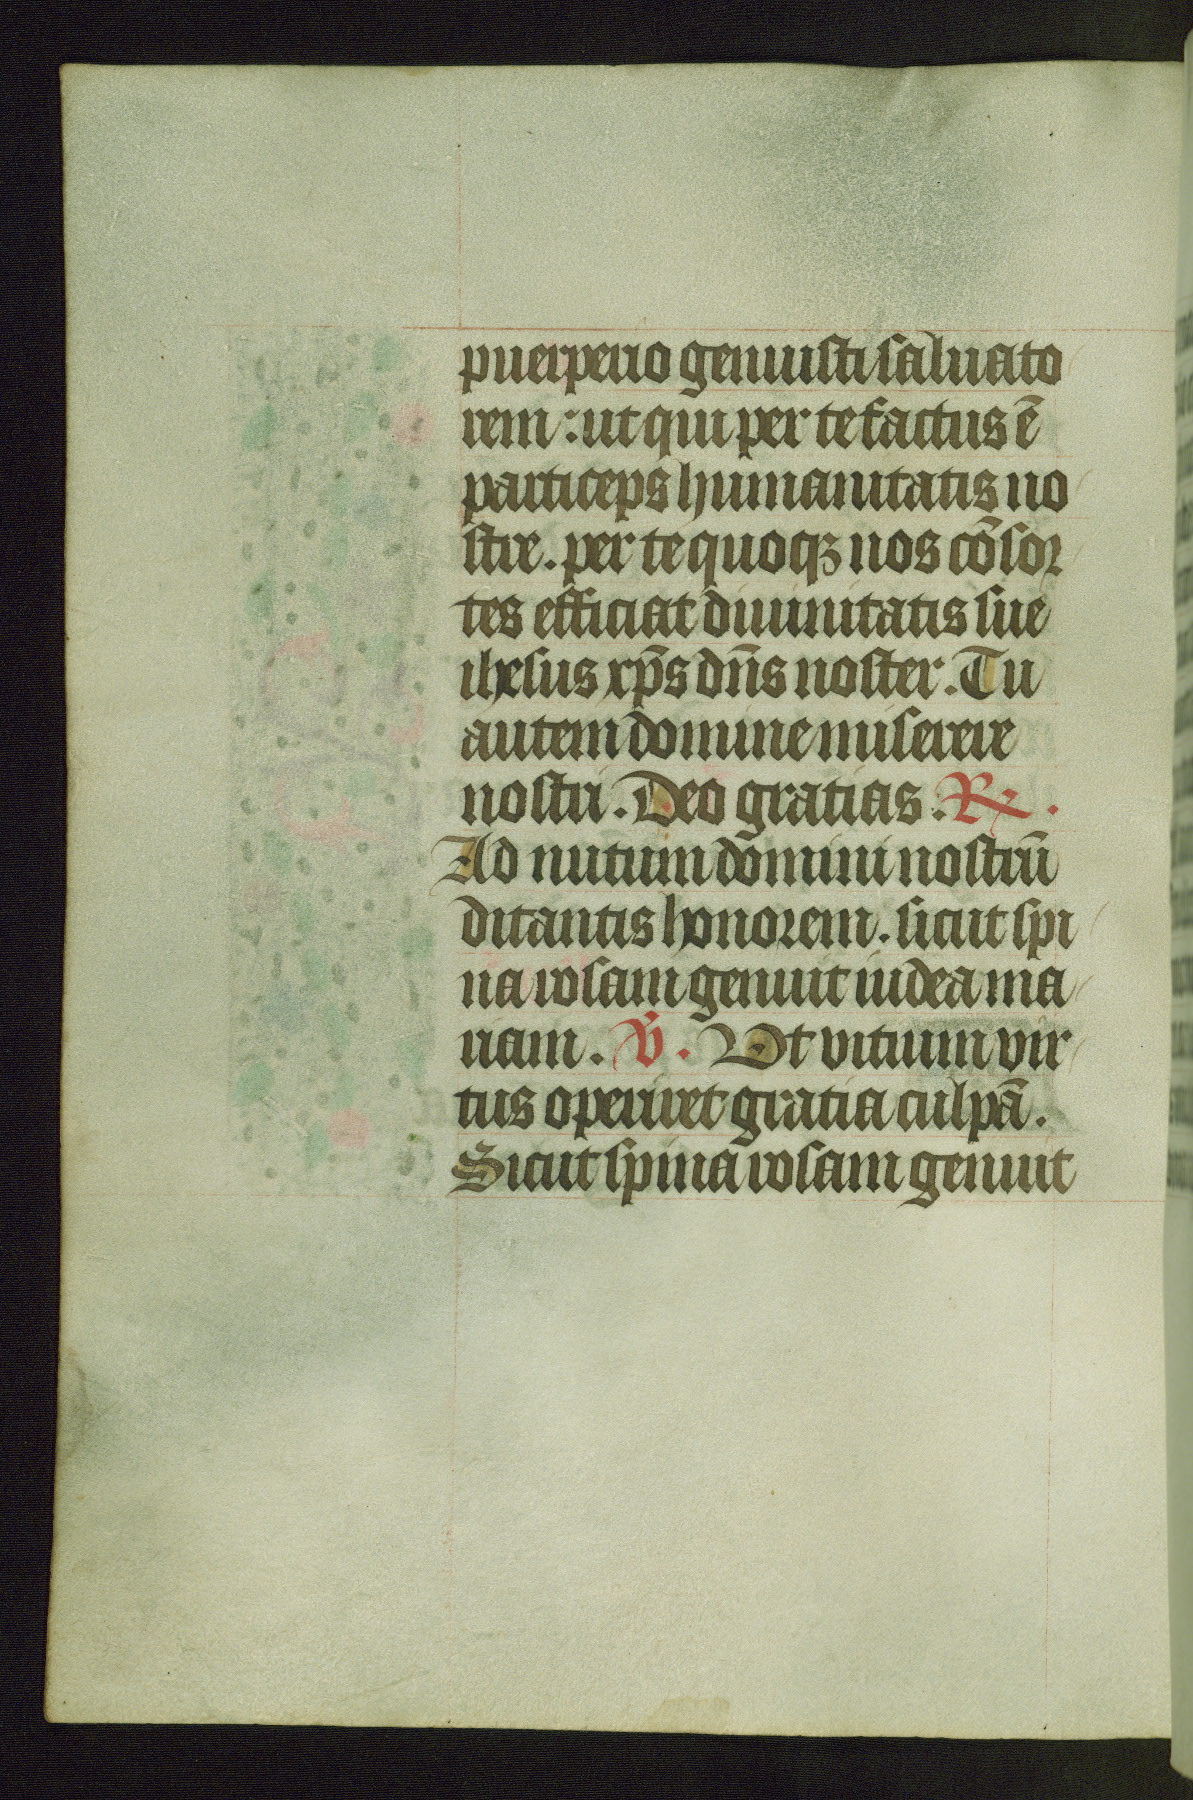 puerperio genuisti saluato
rem : ut qui per te factus ē
particeps humanitatis no
stre . per te quoqꝫ nos cōsor
tes efficiat diuinitatis sue
ihesus xp̄s dn̄s noster . Tu
autem domine miserere
nostri . Deo gratias . R̷ .
Ad nutum domini nostrū
ditantis honorem . sicut spi
na rosam genuit iudea ma
riam . V̄ . Ut vitium vir
tus operiret gratia culpā .
Sicut spina rosam genuit